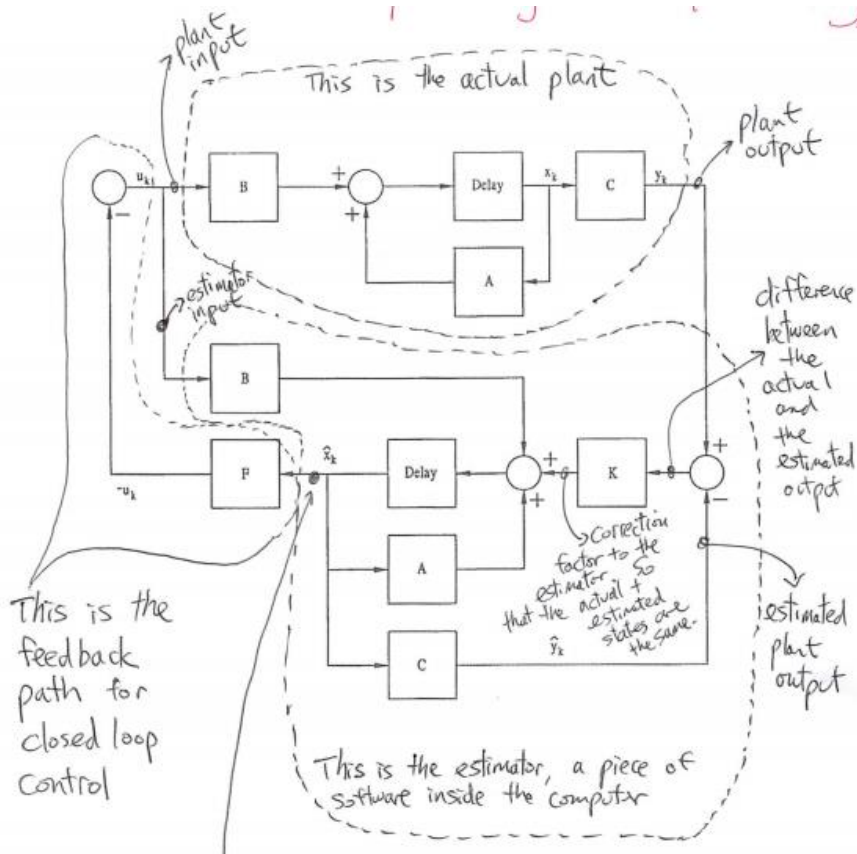 plant
input
This is the actual plant
plant
output
u_k
B
+
+
Delay
x_k
C
y_k
A
-
estimator
input
difference
between
the
actual
and
the
estimated
output
B
F
x̂_k
Delay
+
+
K
+
-
-u_k
A
Correction
factor to the
estimator. So
that the actual +
estimated
states are
the same.
C
ŷ_k
estimated
plant
output
This is the
feedback
path for
closed loop
control
This is the estimator, a piece of
software inside the computer